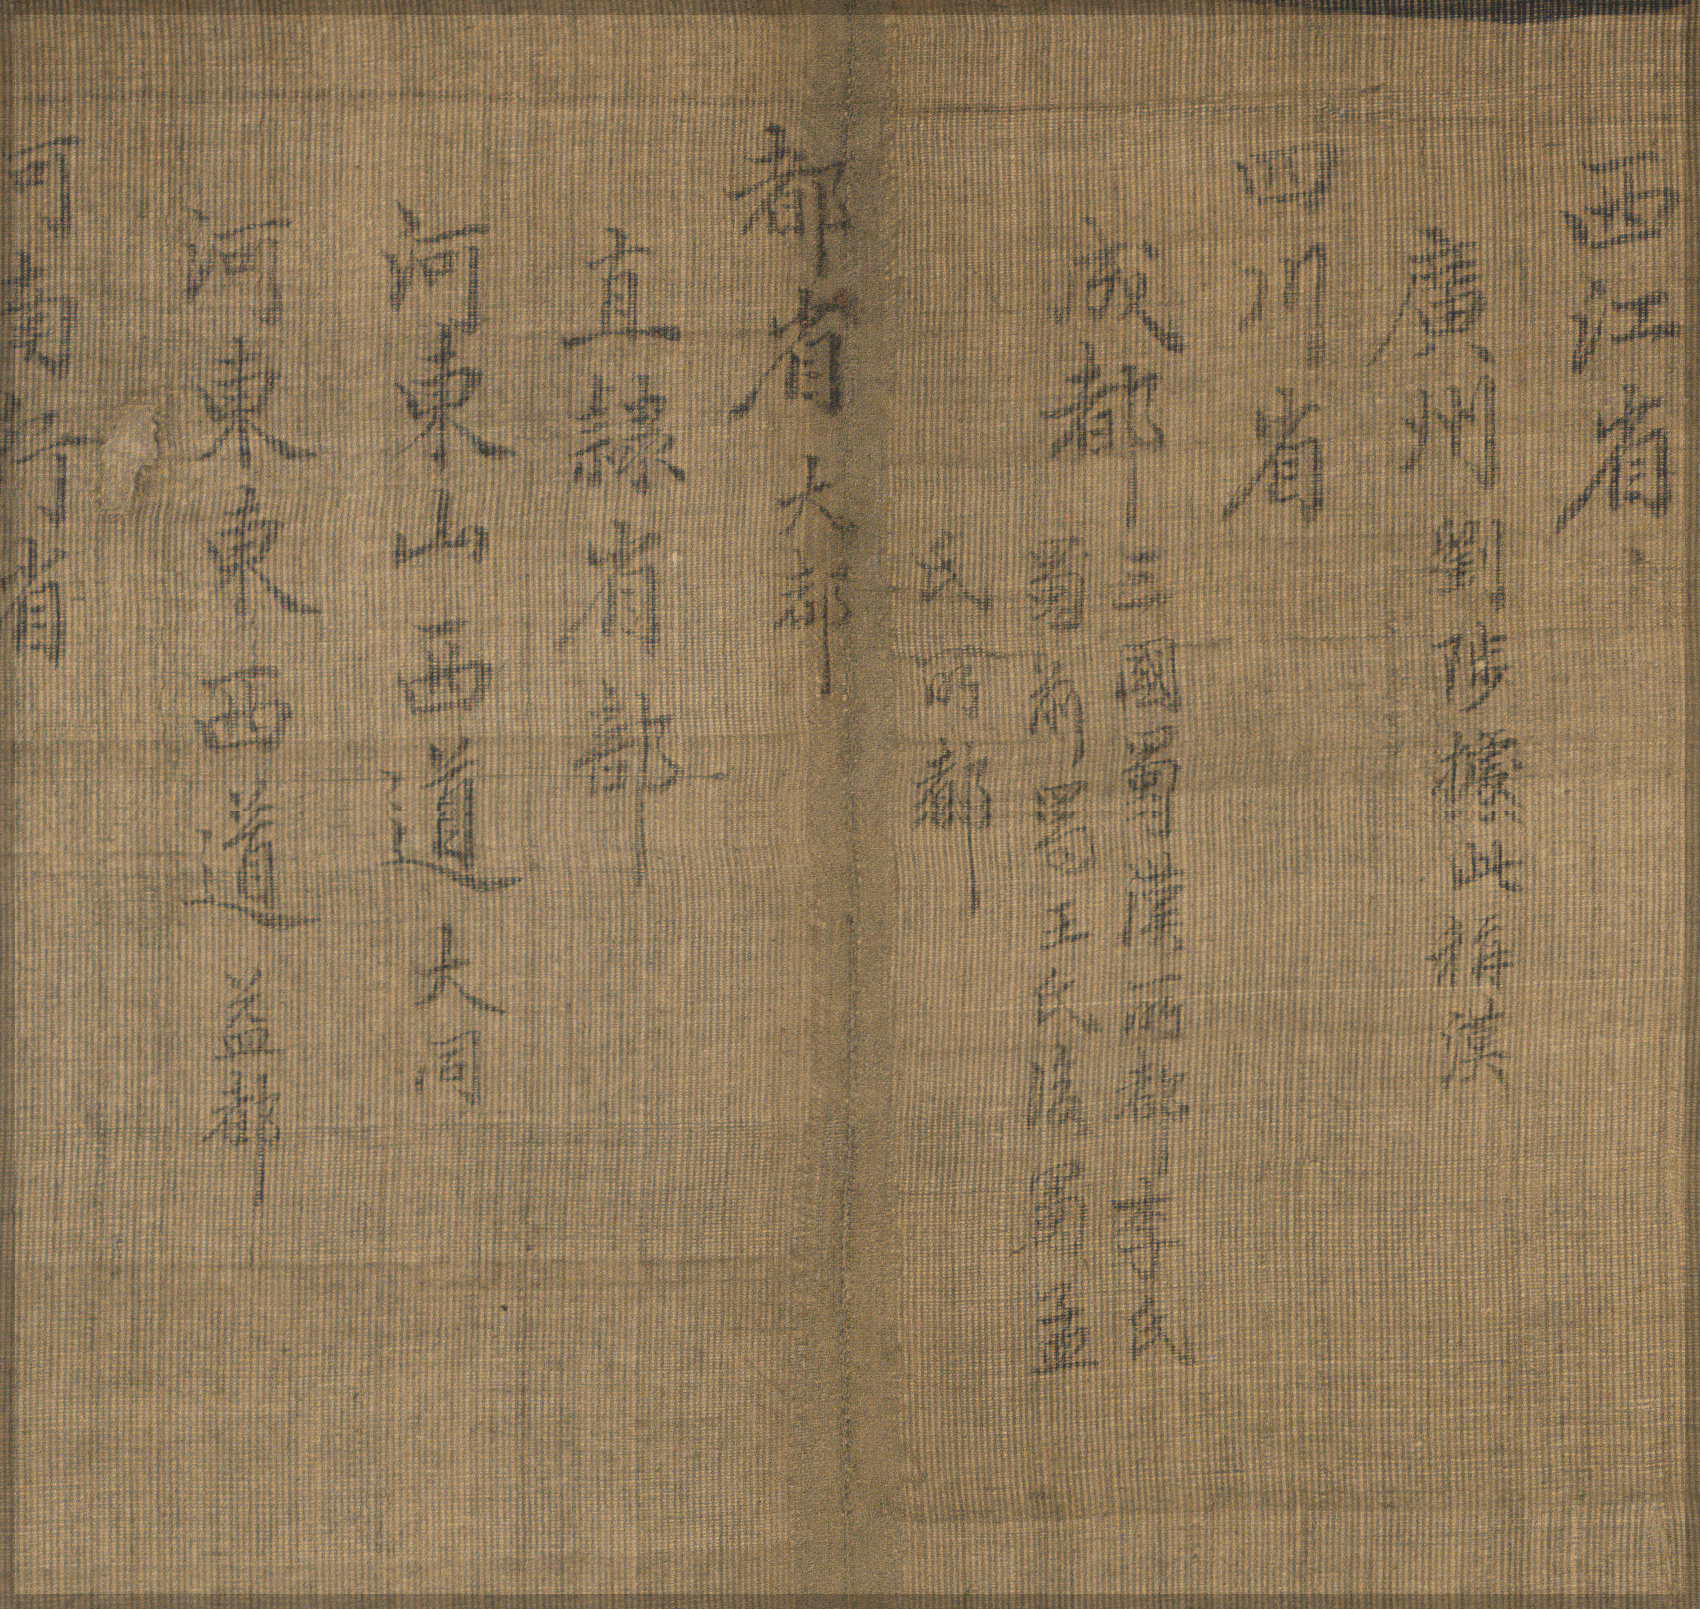 西江省
廣州 劉陟據此稱漢
四川省
成都 三國蜀漢所都 李氏
蜀 前蜀王氏後蜀孟
氏所都
都省 大都
直隸省部
河東山西道 大同
河東東西道 益都
河南行省